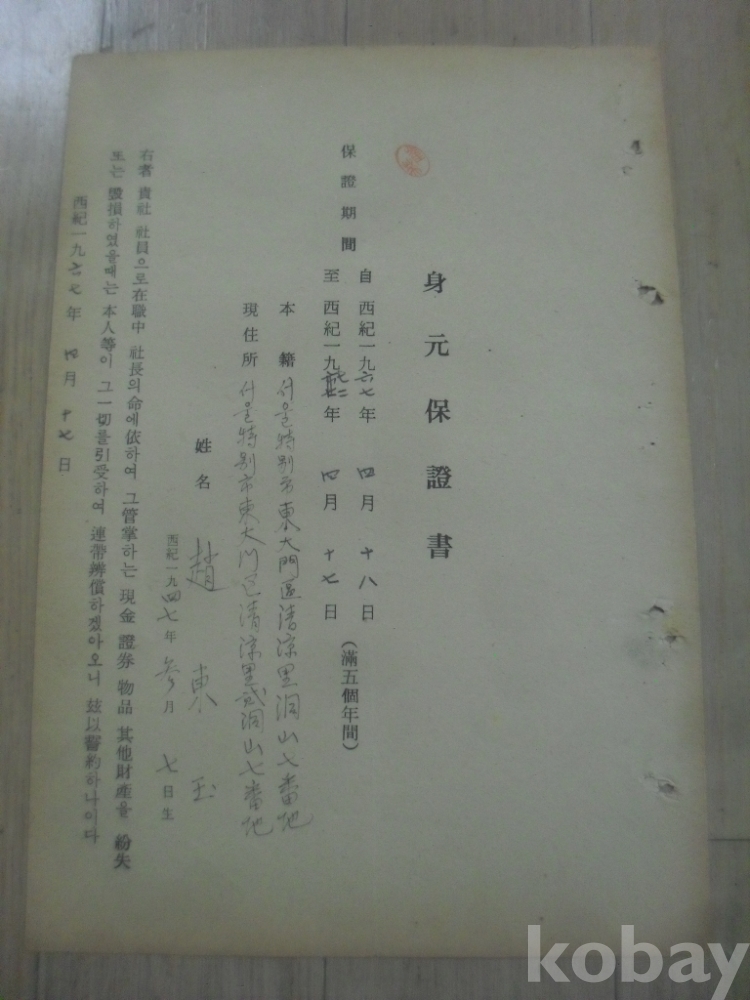 身元保證書
保證期間
自 西紀一九六七年 四月 十八日
至 西紀一九七二年 四月 十七日
(滿五個年間)
本籍 서울特別市東大門區淸凉里洞山七番地
現住所 서울特別市東大门区淸凉里貳洞山七番地
姓名 趙東玉
西紀一九四七年 參月 七日生
右者 貴社 社員으로在職中 社長의命에依하여 그管掌하는 現金 證券 物品 其他財産을 紛失
또는 毁損하였을때는 本人等이 그一切를引受하여 連帶辨償하겠아오니 玆以誓約하나이다
西紀一九六七年 四月 十七日
kobay